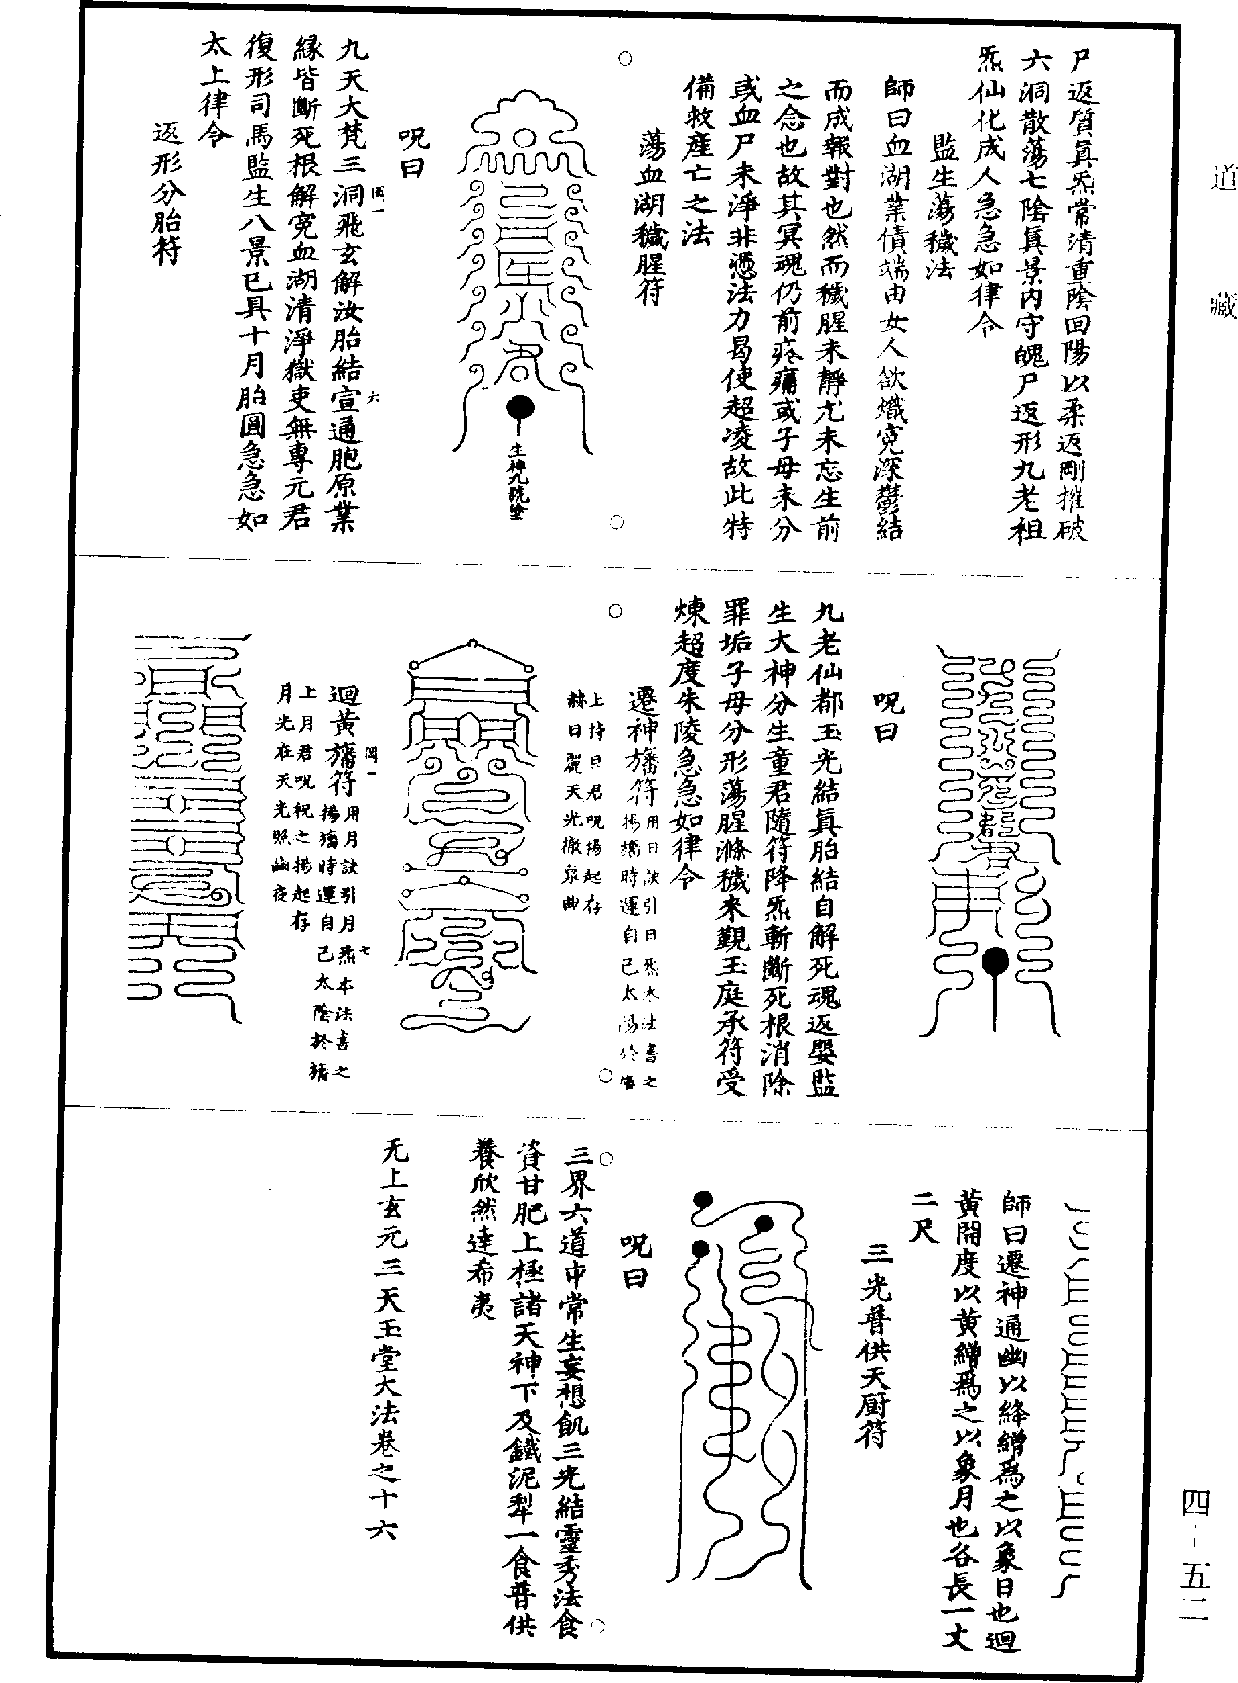 道藏
尸返質真炁常清重陰回陽以柔返剛摧破
六洞散蕩七陰真景內守魄尸返形九老祖
炁仙化成人急急如律令
監生蕩穢法
師曰血湖業債端由女人欲熾冤深鬱結
而成報對也然而穢腥未靜尤未忘生前
之念也故其冥魂仍前疼痛或子母未分
或血尸未淨非憑法力曷使超凌故此特
備救產亡之法
蕩血湖穢腥符
生神九炁塗
呪曰
九天大梵三洞飛玄解汝胎結宣通胞原業
緣皆斷死根解冤血湖清淨獄吏無專元君
復形司馬監生八景已具十月胎圓急急如
太上律令
返形分胎符
呪曰
九老仙都玉光結真胎結自解死魂返嬰監
生大神分生童君隨符降炁斬斷死根消除
罪垢子母分形蕩腥滌穢來觀玉庭承符受
煉超度朱陵急急如律令
遷神旛符用日訣引日炁本法書之
揚旛時運自己太陽於旛
上持日君呪揚起存
赫日麗天光徹泉曲
迴黃旛符用月訣引月炁本法書之
揚旛時運自己太陰於旛
上月君呪祝之揚起存
月光在天光照幽夜
師曰遷神通幽以絳繒為之以象日也迴
黃開度以黃繒為之以象月也各長一丈
二尺
三光普供天厨符
呪曰
三界六道中常生妄想飢三光結靈秀法食
資甘肥上極諸天神下及鐵泥犁一食普供
養欣然達希夷
无上玄元三天玉堂大法卷之十六
四-五二